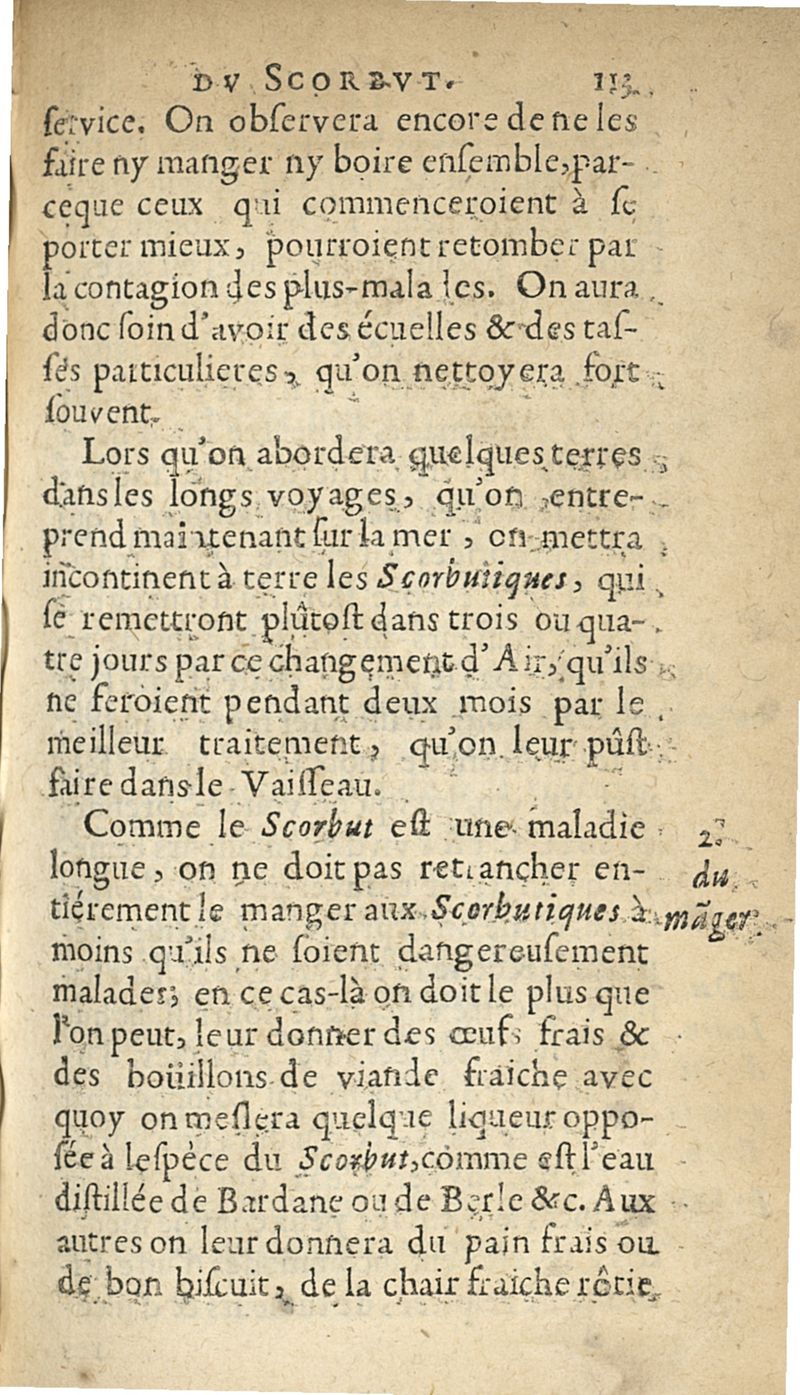 DV SCORBVT. 113
ſervice. On obſervera encore de ne les
faire ny manger ny boire enſemble, par-
ceque ceux qui commenceroient à ſe
porter mieux, pourroient retomber par
la contagion des plus-malades. On aura
donc ſoin d'avoir des écuelles & des taſ-
ſés particulieres, qu'on nettoyera fort
ſouvent.
Lors qu'on abordera quelques terres
dans les longs voyages, qu'on entre-
prend maintenant ſur la mer, on mettra
incontinent à terre les Scorbutiques, qui
ſe remettront plûtoſt dans trois ou qua-
tre jours par ce changement d'Air, qu'ils
ne feroient pendant deux mois par le
meilleur traitement, qu'on leur pûſt
faire dans le Vaiſſeau.
Comme le Scorbut eſt une maladie
longue, on ne doit pas retrancher en-
tiérement le manger aux Scorbutiques à
moins qu'ils ne ſoient dangereuſement
malades; en ce cas-là on doit le plus que
l'on peut, leur donner des œufs frais &
des boüillons de viande fraiche avec
quoy on meſlera quelque liqueur oppo-
ſée à leſpéce du Scorbut, comme eſt l'eau
diſtillée de Bardane ou de Berle &c. Aux
autres on leur donnera du pain frais ou
de bon biſcuit, de la chair fraiche rôtie
2.
du
mãger